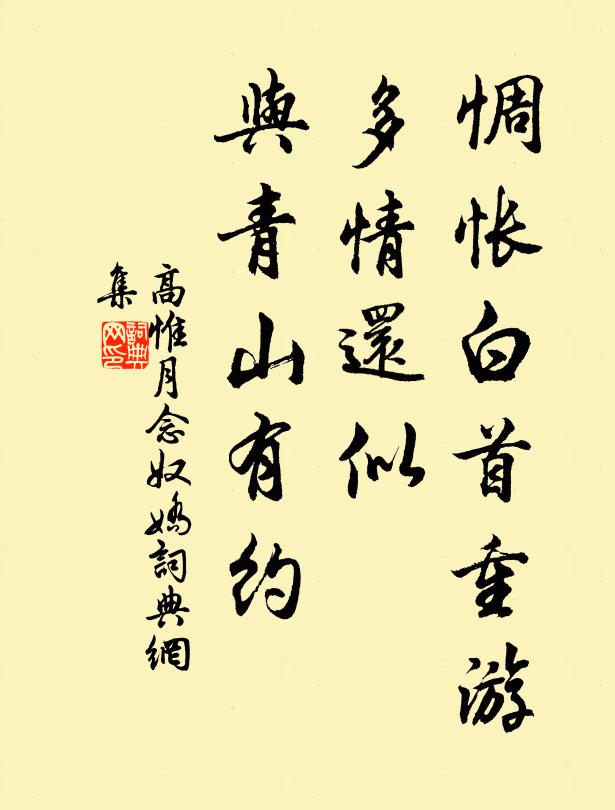 惆怅白首重游
多情還似
與青山有约
高惟月念奴嬌詞典網
集
詞典
网印